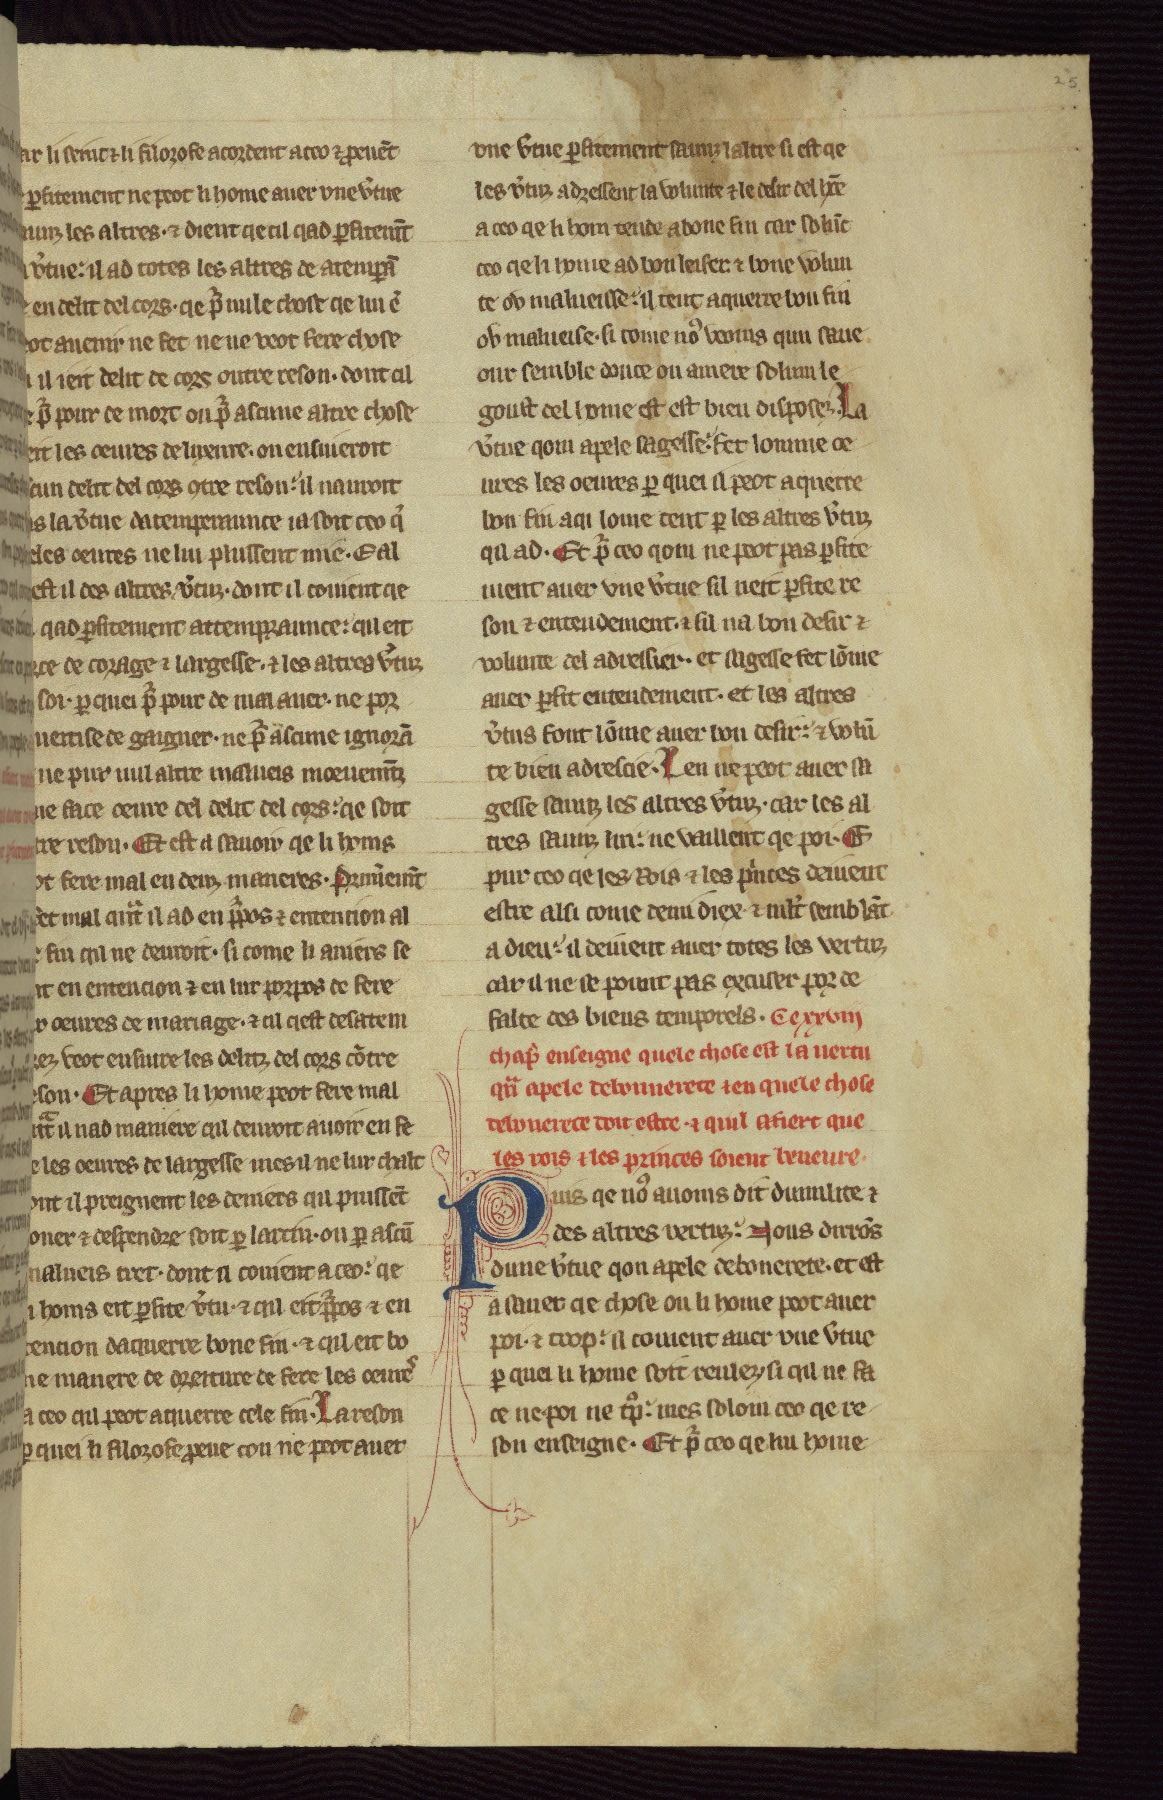 25
ar li seint ⁊ li filozofe acordent a ceo ⁊ ꝑeuet̄
ꝑfitement ne peot li home auer vne v̾tue
les altres · ⁊ dient qe cil qad ꝑfitemt̄
v̾tue : il ad totes les altres de atempā
en delit del cors · qe p̄ nule chose qe lui ē
auenir ne fet ne ne veot fere chose
il ieit delit de cors outre reson · dont cil
p̄ pour de mort ou p̄ ascune altre chose
les oeures de luxure · ou ensuieroit
delit del cors ꝯtre reson : il nauroit
la v̾tue datemperaunce ia soit ceo q̄
oeures ne lui plussent mie · Eal
est il des altres v̾tuz · dont il couient qe
qad ꝑfitement attempraunce : qil eit
de corage ⁊ largesse · ⁊ les altres v̾tuz
soi · ꝑ quei p̄ pour de mal auer · ne por
de gaigner · ne p̄ ascune ignorā
ne pur nul altre malueis moeuemt̄z
ne face oeure del delit del cors : qe soit
reson · Et est a sauoir qe li homs
fere mal en deuz maneres · Prim̄emt̄
mal qn̄t il ad en ꝓpos ⁊ entencion al
fin qil ne deuroit · si come li auers se
en entencion ⁊ en lur porpos de fere
oeures de mariage · ⁊ cil qest desatem
veot ensuire les delitz del cors cōtre
Et apres li home peot fere mal
il nad maniere qil deuroit auoir en fe
les oeures de largesse mes il ne lur chalt
il preignent les deniers qil puissēt
⁊ despendre soit ꝑ larcin · ou ꝑ ascū
malueis tret · dont il couient a ceo : qe
homs eit ꝑfite v̾tu · ⁊ qil eit ꝓpos ⁊ en
tencion daquerre bone fin · ⁊ qil eit bo
ne manere de dreiture de fere les oeures
a ceo qil peot aquerre cele fin · La reson
ꝑ quei li filozofe ꝓeue con ne peot auer
vne v̾tue ꝑfitement sauuz laltre si est qe
les v̾tuz adressent la volunte ⁊ le desir del hōe
a ceo qe li hom tende a bone fin car solūc
ceo qe li home ad bon leiser ⁊ bone volun
te ou malueisse : il tent aquerre bon fin
ou malueise · si come nꝰ veoms qun saue
our semble douce ou amere solunc le
goust del home est est bien disposez · La
v̾tue qom apele sagesse : fet lomme oe
ures les oeures ꝑ quei il peot aquerre
bon fin a qi lome tent ꝑ les altres v̾tuz
qil ad · Et p̄ ceo qom ne peot pas ꝑfite
ment auer vne v̾tue sil neit ꝑfite re
son ⁊ entendement · ⁊ sil na bon desir ⁊
volunte del adresser · et sagesse fet lōme
auer ꝑfit entendement · et les altres
v̾tus font lōme auer bon desir : ⁊ volū
te bien adrescie · Len ne peot auer sa
gesse sauuz les altres v̾tuz · car les al
tres sauuz lui : ne vaillent qe poi · E
pur ceo qe les Rois ⁊ les p̾nces deiuent
estre alsi come demi diex · ⁊ mlt̄ semblāt
a dieu : il deiuent auer totes les vertuz
car il ne se poiunt pas excuser por de
falte des biens temporels · Ce xxviij
chap̄ enseigne quele chose est la uertu
qn̄ apele debonnerete ⁊ en quele chose
debonerete doit estre · ⁊ quil afiert que
les rois ⁊ les princes soient beneure ·
Puis qe nꝰ auoms dit dumilite ⁊
des altres vertuz : Nous dirrōs
dune v̾tue qon apele debonerete · et est
a sauer qe chose ou li home peot auer
poi · ⁊ trop : il couient auer vne v̾tue
ꝑ quei li home soit reulez si qil ne fa
ce ne poi ne tp̄ : mes solom ceo qe re
son enseigne · Et p̄ ceo qe nu home